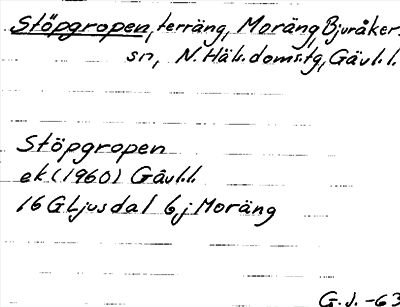 Stöpgropen, terräng, Moräng, Bjuråker.
sn, N. Häls. doms.tg, Gäv.l.l.
Stöpgropen
ek (1960) Gäv.l.l.
16 G Ljusdal 6 j Moräng
G.J.-63